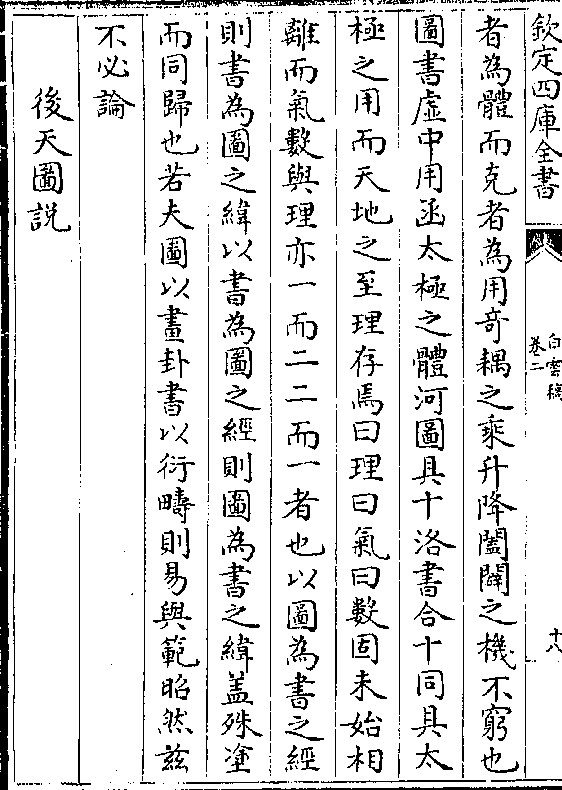 欽定四庫全書
白雲稿
卷二
十八
者為體而克者為用竒耦之乗升降闔闢之機不窮也
圖書虚中用函太極之體河圖具十洛書合十同具太
極之用而天地之至理存焉曰理曰氣曰數固未始相
離而氣數與理亦一而二二而一者也以圖為書之經
則書為圖之緯以書為圖之經則圖為書之緯盖殊塗
而同歸也若夫圖以畫卦書以衍疇則易與範昭然兹
不必論
後天圖説